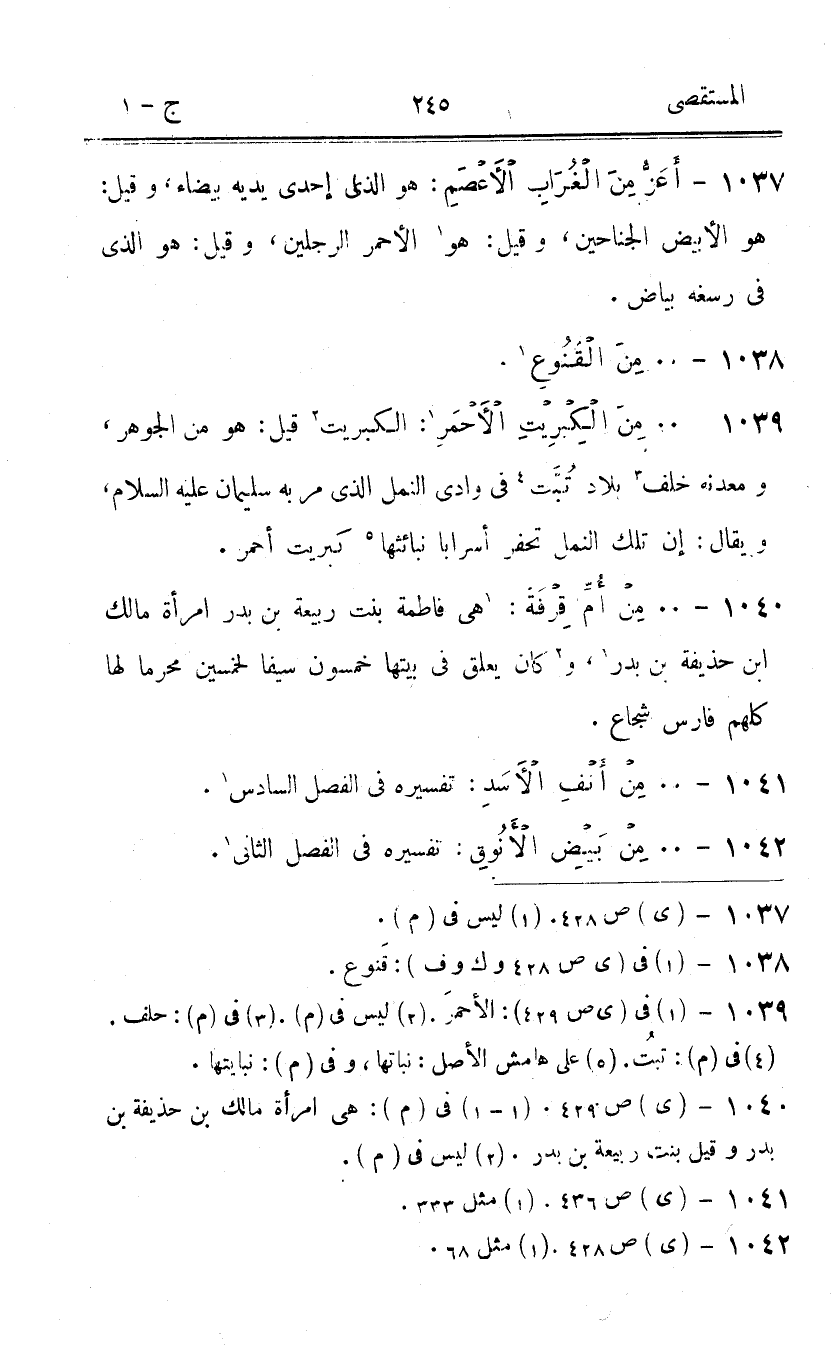 المستقصى ٢٤٥ ج - ١
١٠٣٧ - أَعَزُّ مِنَ الْغُرَابِ الْأَعْصَمِ : هو الذى إحدى يديه بيضاء، و قيل:
هو الأبيض الجناحين، و قيل: هو١ الأحمر الرجلين، و قيل: هو الذى
فى رسغه بياض .
١٠٣٨ - ٠٠ مِنَ الْقُنُوعِ١ .
١٠٣٩ ٠٠ مِنَ الْكِبْرِيْتِ الْأَحْمَرِ١: الكبريت٢ قيل: هو من الجوهر،
و معدنه خلف٣ بلاد تُبَّت٤ فى وادى النمل الذى مر به سليمان عليه السلام،
و يقال: إن تلك النمل تحفر أسرابا نبائثها٥ كبريت أحمر .
١٠٤٠ - ٠٠ مِنْ أُمِّ قِرْفَةَ : ١هى فاطمة بنت ربيعة بن بدر امرأة مالك
ابن حذيفة بن بدر١، و٢كان يعلق فى بيتها خمسون سيفا لخمسين محرما لها
كلهم فارس شجاع .
١٠٤١ - ٠٠ مِنْ أَنْفِ الْأَسَدِ : تفسيره فى الفصل السادس١ .
١٠٤٢ - ٠٠ مِنْ بَيْضِ الْأَنُوْقِ : تفسيره فى الفصل الثانى١.
١٠٣٧ - (ى) ص ٤٢٨. (١) ليس فى (م).
١٠٣٨ - (١) فى (ى ص ٤٢٨ و ك و ف): قَنوع .
١٠٣٩ - (١) فى (ى ص ٤٢٩): الأحمرَ .(٢) ليس فى (م) .(٣) فى (م): حلف .
(٤) فى (م): تبتُ. (٥) على هامش الأصل: نباتها، و فى (م): نبايتها .
١٠٤٠ - (ى) ص ٤٢٩ . (١-١) فى (م): هى امرأة مالك بن حذيفة بن
بدر و قيل بنت ربيعة بن بدر .(٢) ليس فى (م).
١٠٤١ - (ى) ص ٤٣٦ . (١) مثل ٣٣٣ .
١٠٤٢ - (ى) ص ٤٢٨ .(١) مثل ٦٨ .